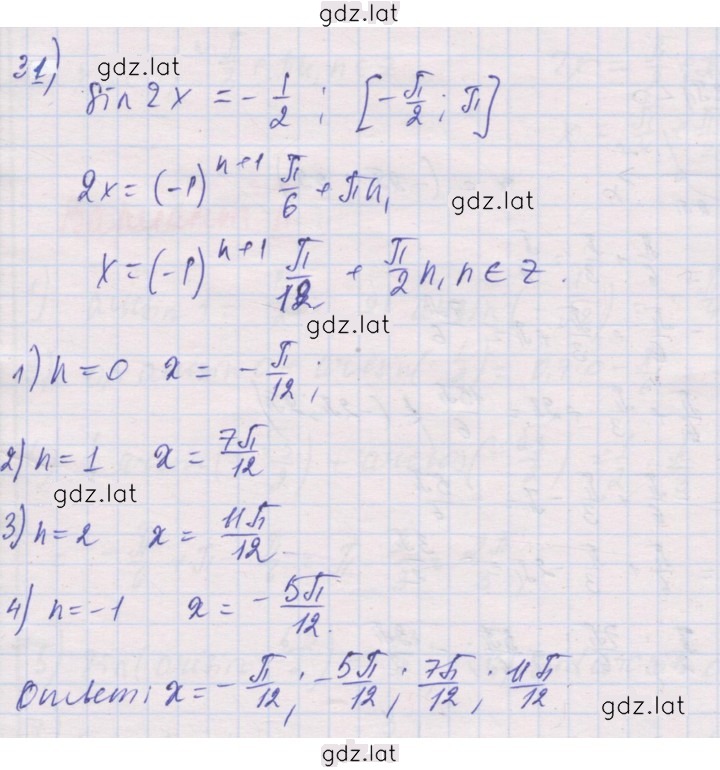 gdz.lat
31) gdz.lat
sin 2x = - 1/2 ; [-π/2 ; π]
2x = (-1)^(n+1) π/6 + πn,
gdz.lat
x = (-1)^(n+1) π/12 + π/2 n, n ∈ z.
gdz.lat
1) n = 0 x = - π/12;
2) n = 1 x = 7π/12
gdz.lat
3) n = 2 x = 11π/12.
4) n = -1 x = - 5π/12.
Ответ: x = - π/12; - 5π/12; 7π/12; 11π/12.
gdz.lat
gdz.lat